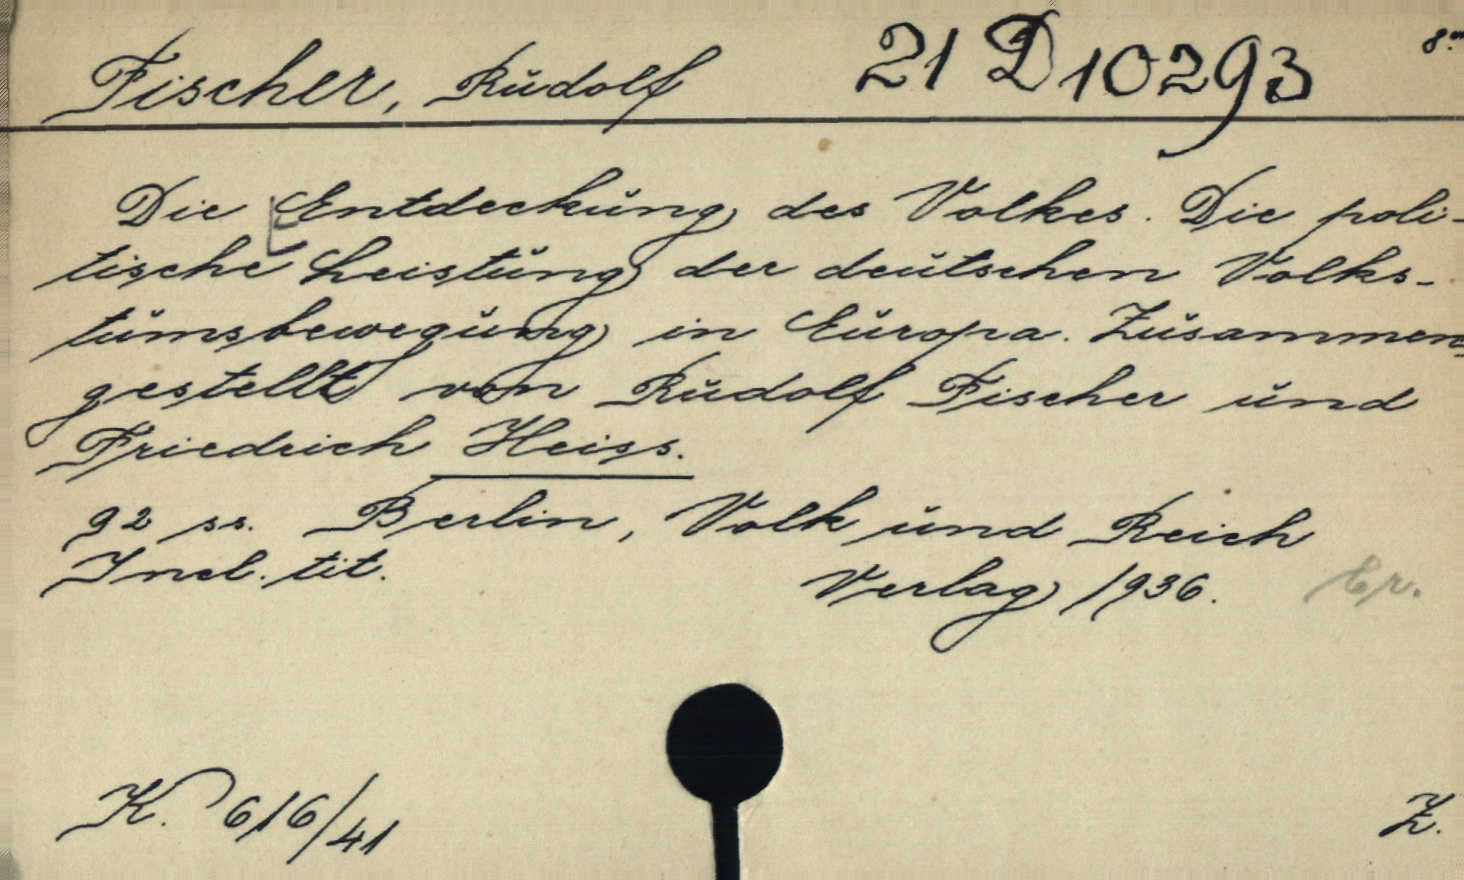 Fischer, Rudolf 21 D 10293 8.°
Die Entdeckung des Volkes. Die poli-
tische Leistung der deutschen Volks-
tumsbewegung in Europa. Zusammen-
gestellt von Rudolf Fischer und
Friedrich Heiss.
92 ss. Berlin, Volk und Reich
Incl. tit. Verlag 1936.
K. 616/41 Z.